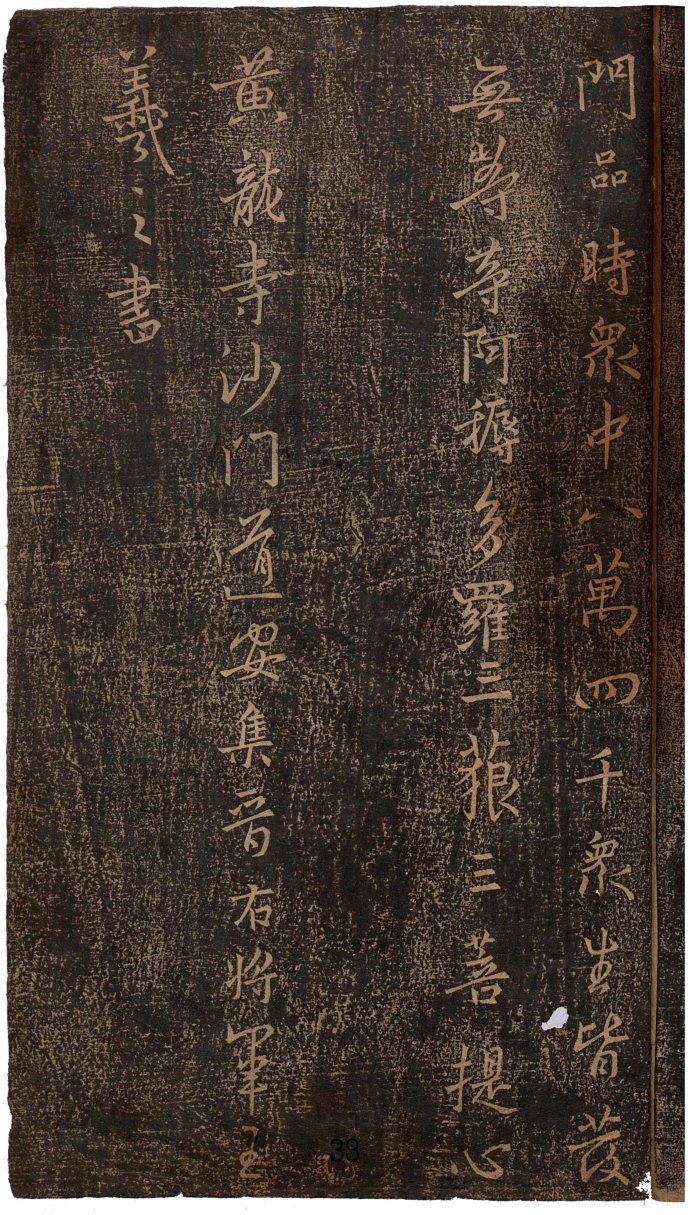 門品時衆中八萬四千衆生皆發
無等等阿耨多羅三藐三菩提心
黃龍寺沙门道安集晉右將軍王
羲之書
33